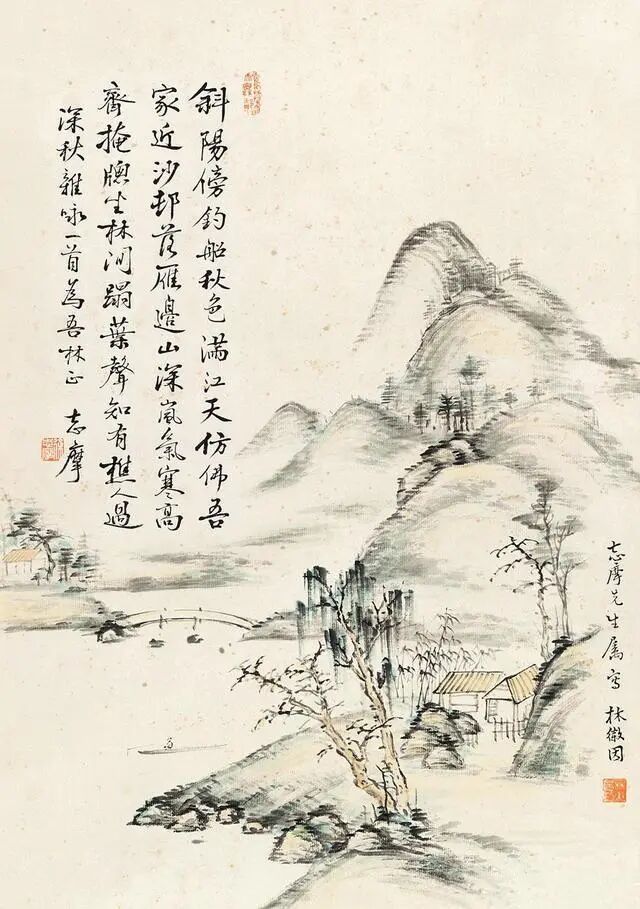 斜陽傍釣船秋色滿江天仿佛吾
家近沙邨落雁邊山深嵐氣寒高
齊掩牕坐林间蹋葉聲知有樵人過
深秋雜咏一首為吾林正 志摩
志摩先生属写 林徽因